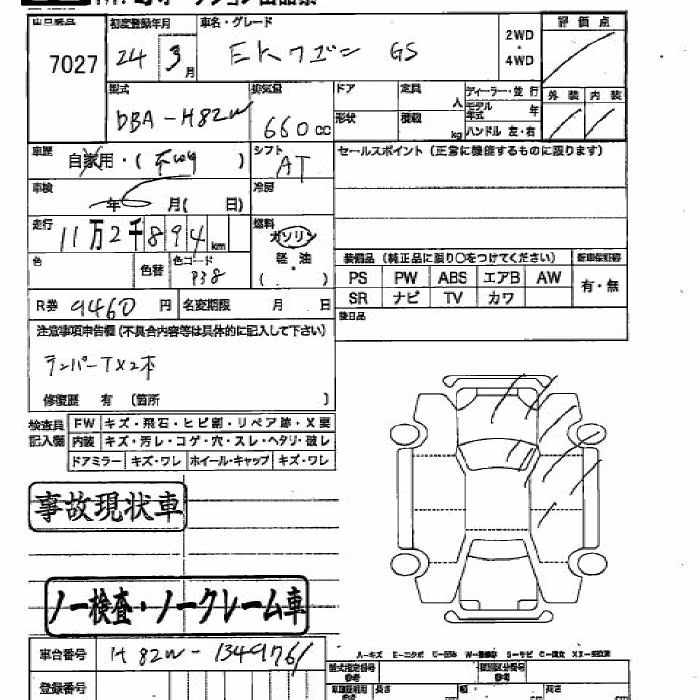 出品番号
7027
初度登録年月
24 3月
車名・グレード
EKワゴン GS
2WD
・
4WD
評価点
型式
DBA-H82W
排気量
660cc
ドア
定員
人
ディーラー・並行
モデル年式
年
外装 内装
形状
積載
kg
ハンドル 左・右
車歴
自家用・( )
シフト
AT
セールスポイント(正常に機能するものに限ります)
車検
年 月( 日)
冷房
走行
11万2千894km
燃料
ガソリン
・
軽油
( )
色
色替
色コード
P38
装備品(純正品に限り○をつけてください)
新車保証書
PS PW ABS エアB AW
有・無
SR ナビ TV カワ
R券 9460円
名変期限 月 日
後日品
注意事項申告欄(不具合内容等は具体的に記入して下さい)
テンパーT×2本
修復歴 有(箇所 )
検査員記入欄
FW キズ・飛石・ヒビ割・リペア跡・X要
内装 キズ・汚レ・コゲ・穴・スレ・ヘタリ・破レ
ドアミラー キズ・ワレ ホイール・キャップ キズ・ワレ
事故現状車
ノー検査・ノークレーム車
車台番号
H82W-1349761
登録番号
型式指定番号
参考
類別区分番号
参考
長さ
幅
高さ